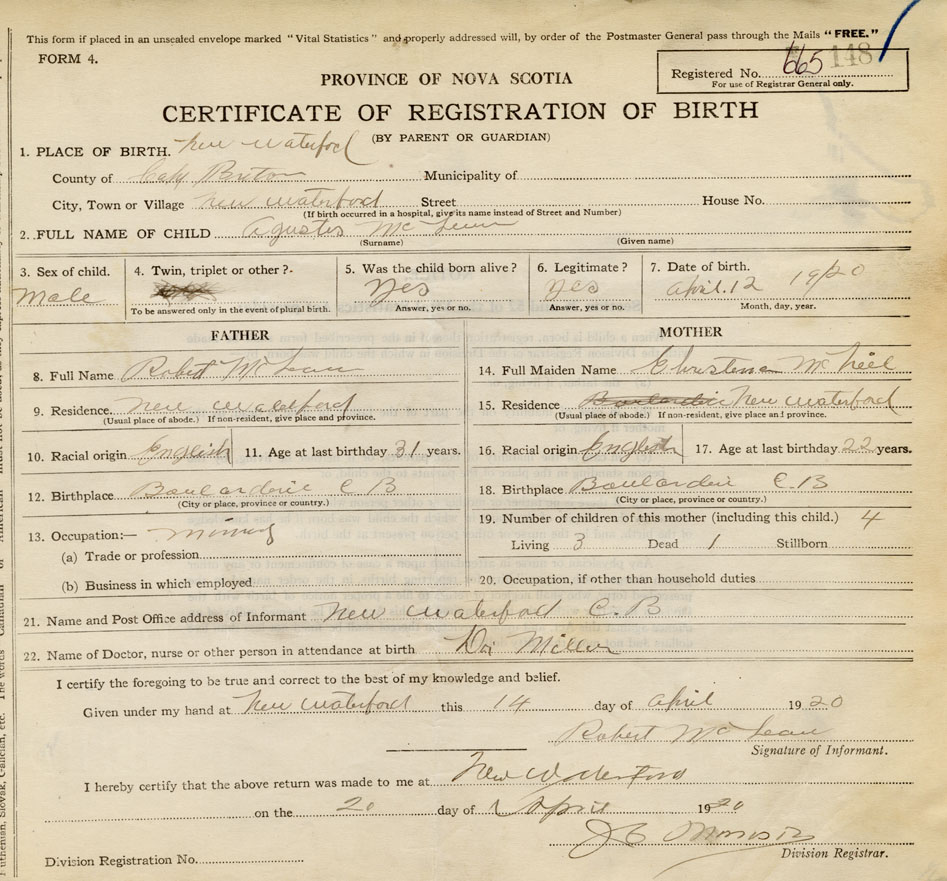 This form if placed in an unsealed envelope marked "Vital Statistics" and properly addressed will, by order of the Postmaster General pass through the Mails "FREE."
FORM 4.
Registered No. 665 148
For use of Registrar General only.
PROVINCE OF NOVA SCOTIA
CERTIFICATE OF REGISTRATION OF BIRTH
(BY PARENT OR GUARDIAN)
1. PLACE OF BIRTH. New Waterford
County of Cape Breton Municipality of
City, Town or Village New Waterford Street House No.
(If birth occurred in a hospital, give its name instead of Street and Number)
2. FULL NAME OF CHILD Agustus Mc Lean
(Surname) (Given name)
3. Sex of child. 4. Twin, triplet or other? 5. Was the child born alive? 6. Legitimate? 7. Date of birth.
Male yes yes April. 12 1920
To be answered only in the event of plural birth. Answer, yes or no. Answer, yes or no. Month, day, year.
FATHER MOTHER
8. Full Name Robert Mc Lean 14. Full Maiden Name Mc Neil
9. Residence. New Waterford 15. Residence New Waterford
(Usual place of abode.) If non-resident, give place and province. (Usual place of abode.) If non-resident, give place and province.
10. Racial origin English 11. Age at last birthday 31 years. 16. Racial origin English 17. Age at last birthday 22 years.
12. Birthplace Boulardrie C B 18. Birthplace Boulardrie C. B
(City or place, province or country.) (City or place, province or country.)
13. Occupation:— Mining 19. Number of children of this mother (including this child.) 4
(a) Trade or profession Living 3 Dead 1 Stillborn
(b) Business in which employed 20. Occupation, if other than household duties
21. Name and Post Office address of Informant New Waterford C. B
22. Name of Doctor, nurse or other person in attendance at birth Dr Miller
I certify the foregoing to be true and correct to the best of my knowledge and belief.
Given under my hand at New Waterford this 14 day of April 1920
Robert Mc Lean
Signature of Informant.
I hereby certify that the above return was made to me at New Waterford
on the 20 day of April 1920
Division Registrar.
Division Registration No.